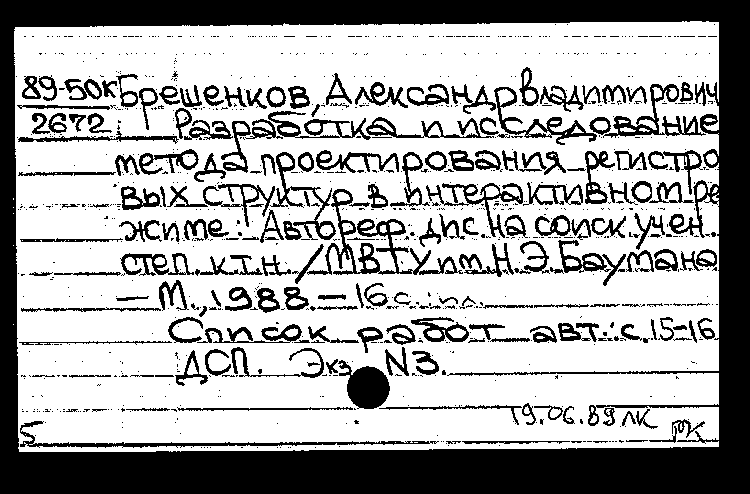 89-50к Брешенков, Александр Владимирович
2672 Разработка и исследование
метода проектирования регистро
вых структур в интерактивном ре
жиме: Автореф. дис. на соиск. учен.
степ. к.т.н. / МВТУ им. Н.Э. Баумана
— М., 1988. — 16 с.: ил.
Список работ авт.: с. 15-16
ДСП. Экз N3.
19.06.89 ЛК
5